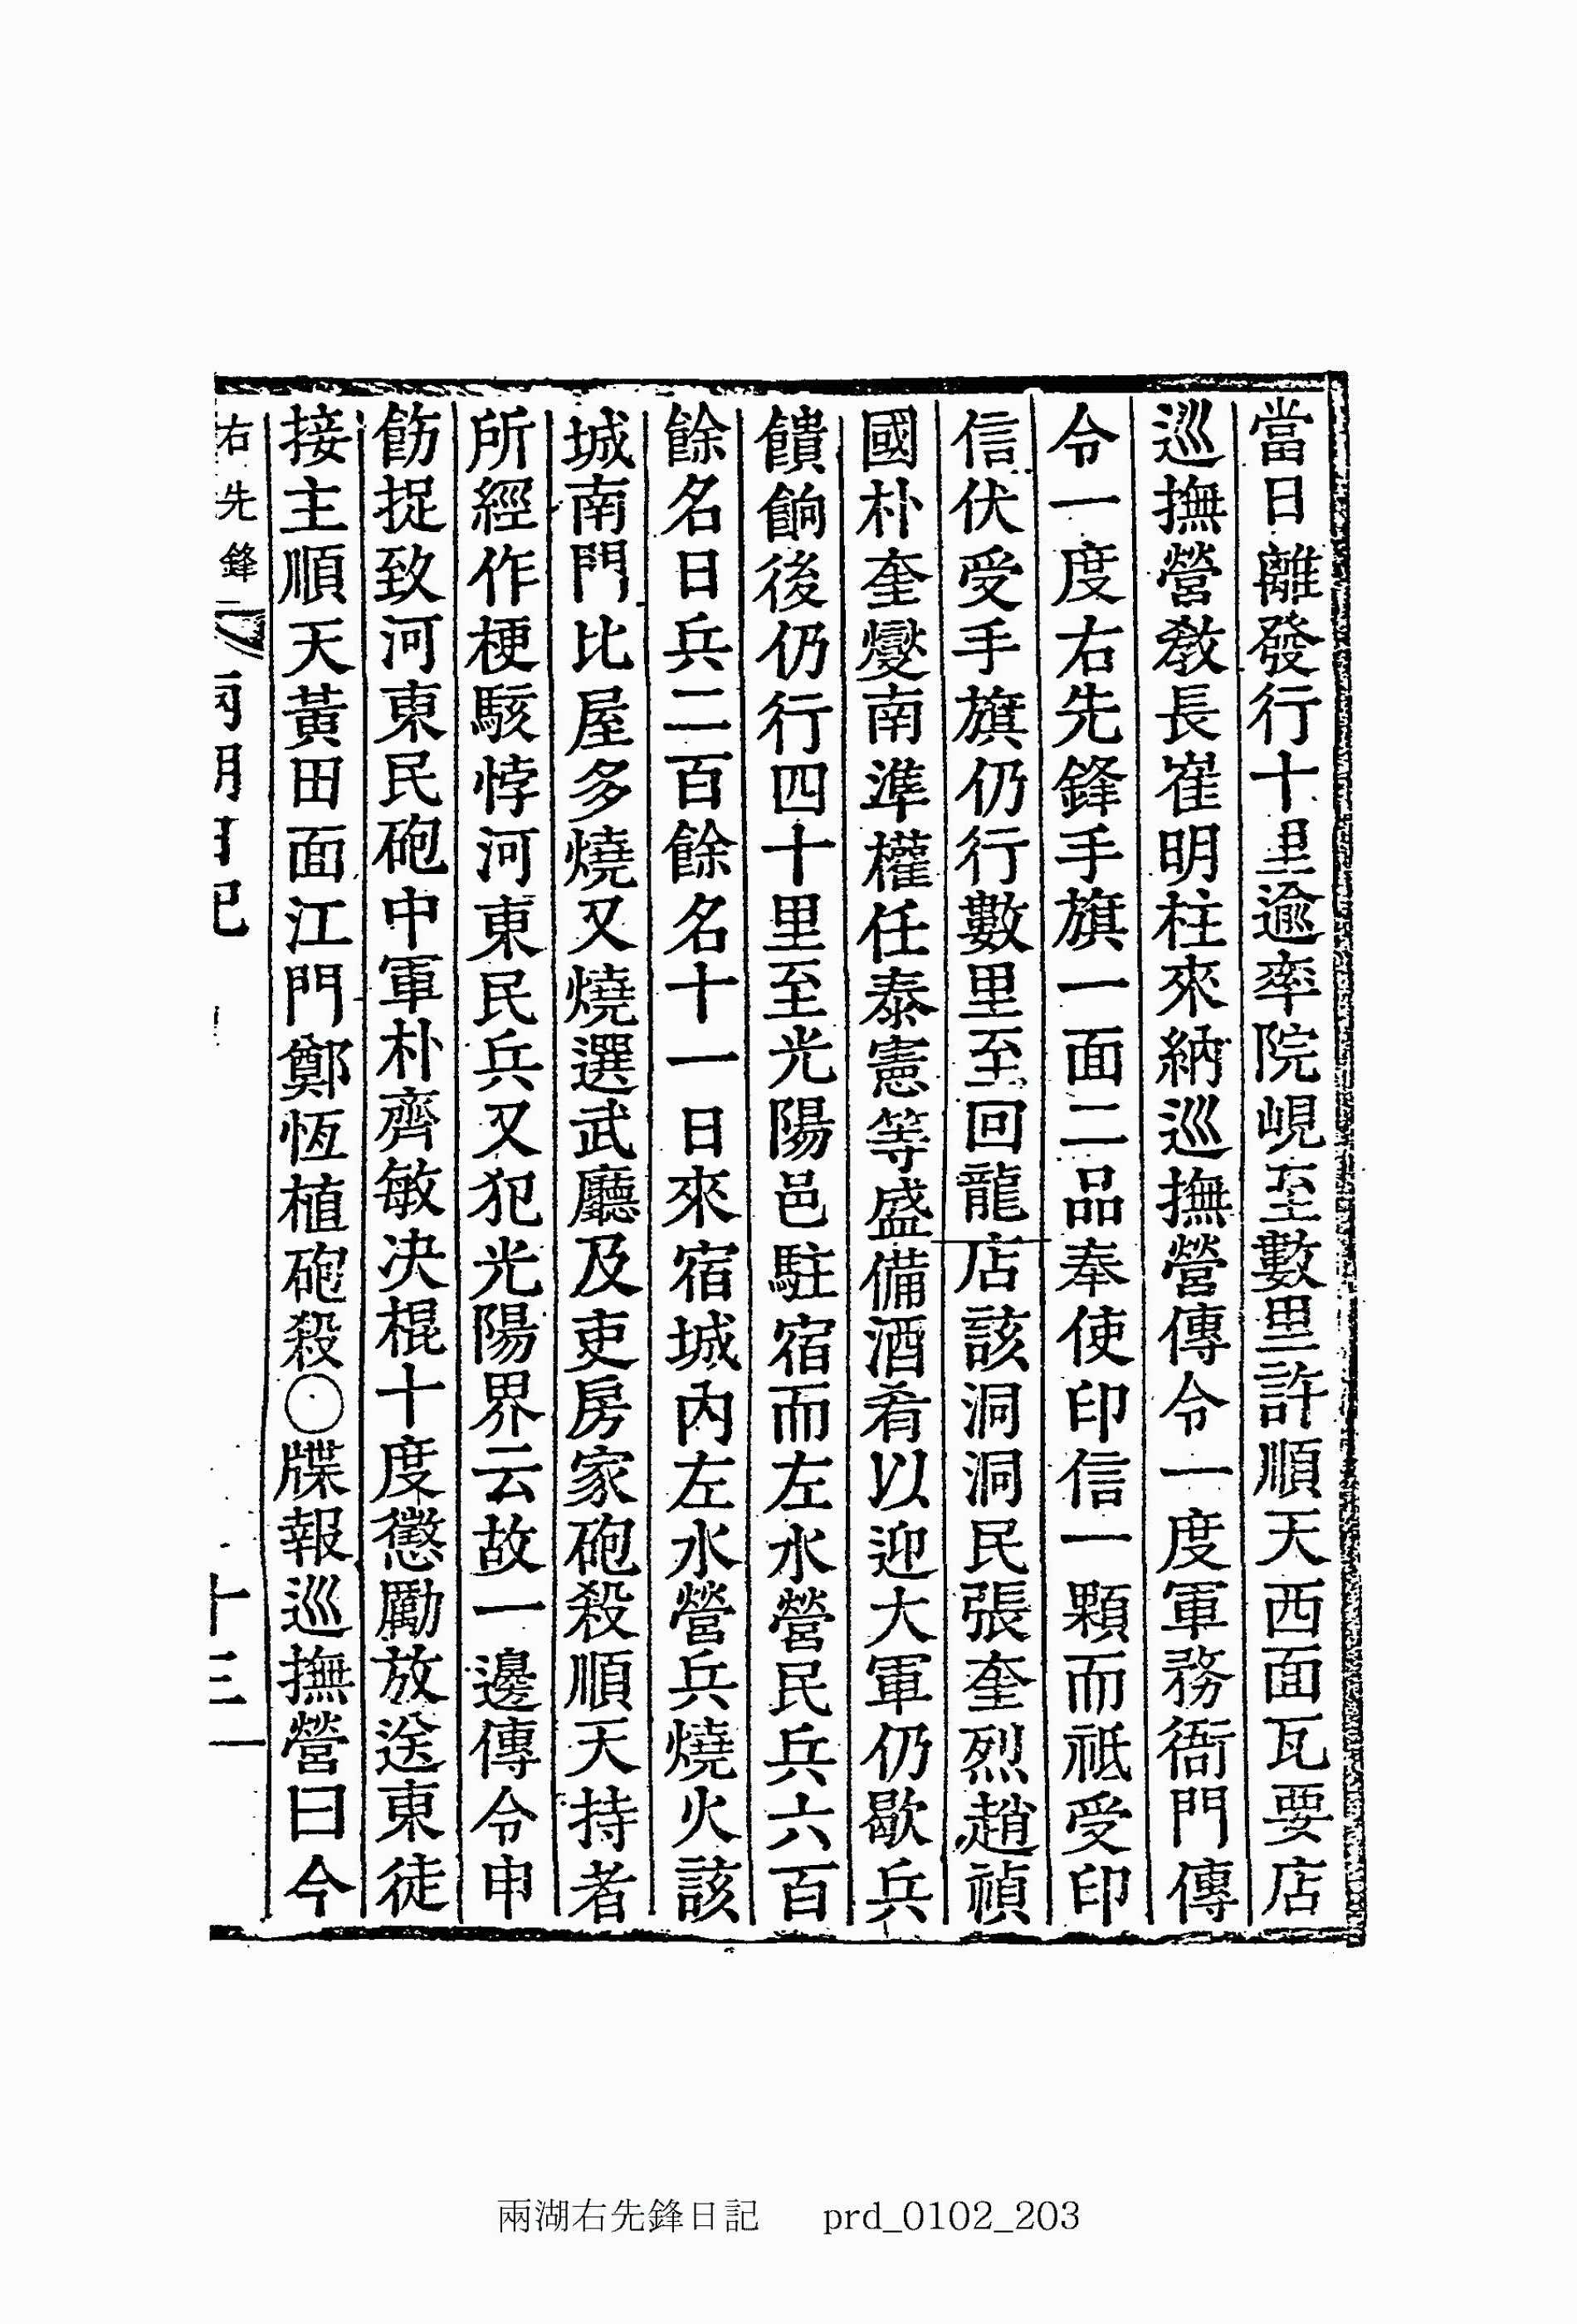 當日離發行十里逾率院峴至數里許順天西面瓦要店
巡撫營敎長崔明柱來納巡撫營傳令一度軍務衙門傳
令一度右先鋒手旗一面二品奉使印信一顆而祗受印
信伏受手旗仍行數里至回龍店該洞洞民張奎烈趙禎
國朴奎燮南準權任泰憲等盛備酒肴以迎大軍仍歇兵
饋餉後仍行四十里至光陽邑駐宿而左水營民兵六百
餘名日兵二百餘名十一日來宿城內左水營兵燒火該
城南門比屋多燒又燒選武廳及吏房家砲殺順天持者
所經作梗駭悖河東民兵又犯光陽界云故一邊傳令申
飭捉致河東民砲中軍朴齊敏决棍十度懲勵放送東徒
接主順天黃田面江門鄭恆植砲殺○牒報巡撫營曰今
右先鋒 兩湖日記 十三
兩湖右先鋒日記 prd_0102_203